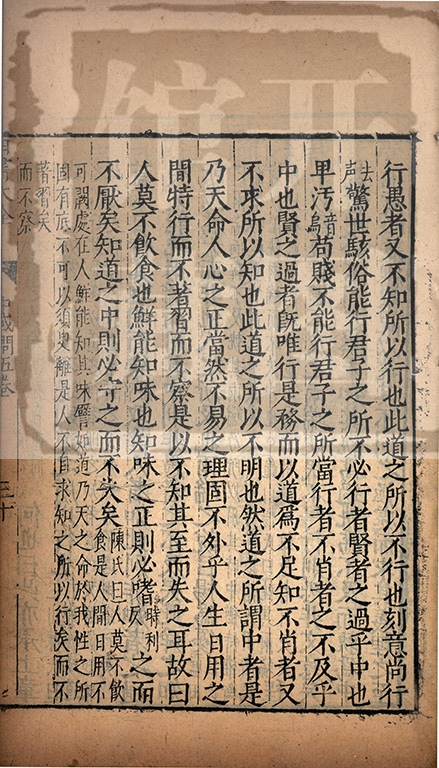 行愚者又不知所以行也此道之所以不行也刻意尚行
去聲驚世駭俗能行君子之所不必行者賢者之過乎中也
卑汚音烏苟賤不能行君子之所當行者不肖者之不及乎
中也賢之過者旣唯行是務而以道爲不足知不肖者又
不求所以知也此道之所以不明也然道之所謂中者是
乃天命人心之正當然不易之理固不外乎人生日用之
間特行而不著習而不察是以不知其至而失之耳故曰
人莫不飮食也鮮能知味也知味之正則必嗜時利反之而
不厭矣知道之中則必守之而不失矣陳氏曰人莫不飮食是人間日用不
可闕處在人鮮能知其味譬如道乃天之命於我性之所
固有底不可以須臾離是人不自求知之所以行矣而不
著習矣
而不察
三十